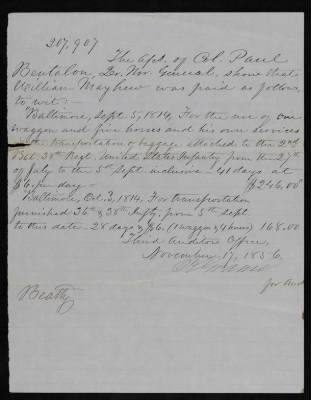 207,907
The Apt. of Col. Paul
Bentalou, Dr. Mr. General, shows that
William Mayhew was paid as follows,
to wit:-
Baltimore, Sept. 5, 1814, For the use of one
waggon and five horses and his own services
in the transportation of baggage attached to the 2nd
Bat. 38th Regt. United States Infantry from the 27th
of July to the 5th Sept. inclusive - 41 days at
$6. per day - $246.00
Baltimore, Oct. 3, 1814. For transportation
furnished 36th & 38th Infty, from 5th Sept.
to this date - 28 days @ $6. (1 waggon & 4 horses) 168.00
Third Auditors Office,
November 17, 1856
for Aud
Beatty